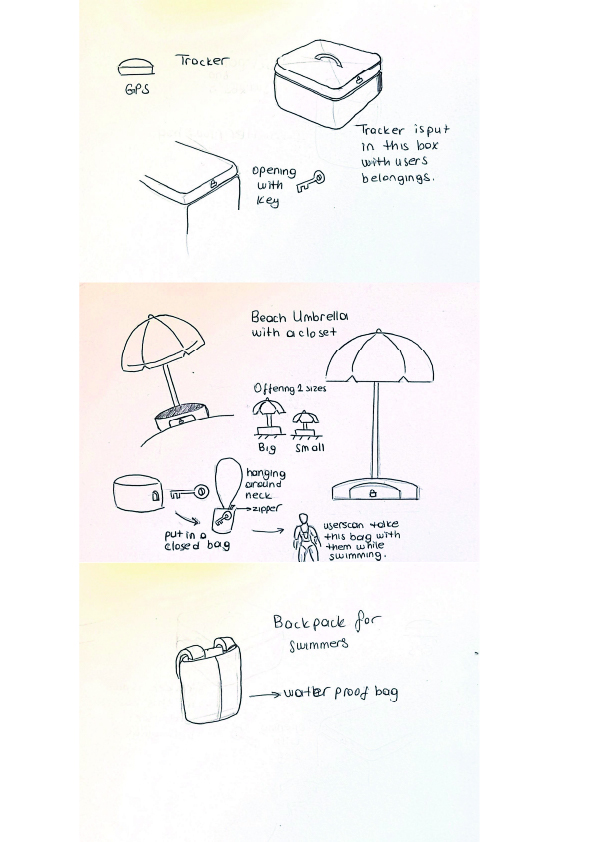 Tracker
GPS
Tracker is put
in this box
with users
belongings.
opening
with
key
Beach Umbrella
with a closet
Offering 2 sizes
Big
Small
hanging
around
neck
zipper
put in a
closed bag
users can take
this bag with
them while
swimming.
Backpack for
swimmers
water proof bag